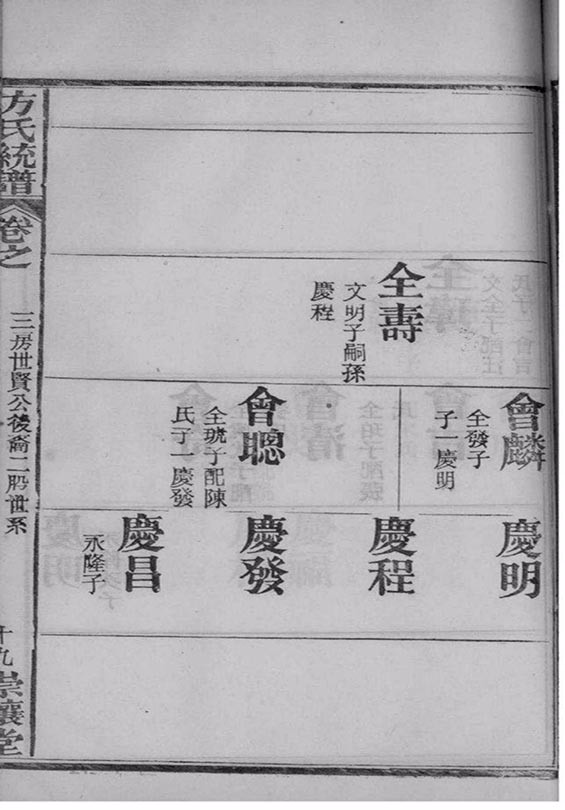 全壽
文明子嗣孫
慶程
會麟
全發子
子一慶明
會聰
全琥子配陳
氏子一慶發
慶明
慶程
慶發
慶昌
永隆子
方氏統譜
卷之
三房世賢公後裔二股世系
十九
崇讓堂